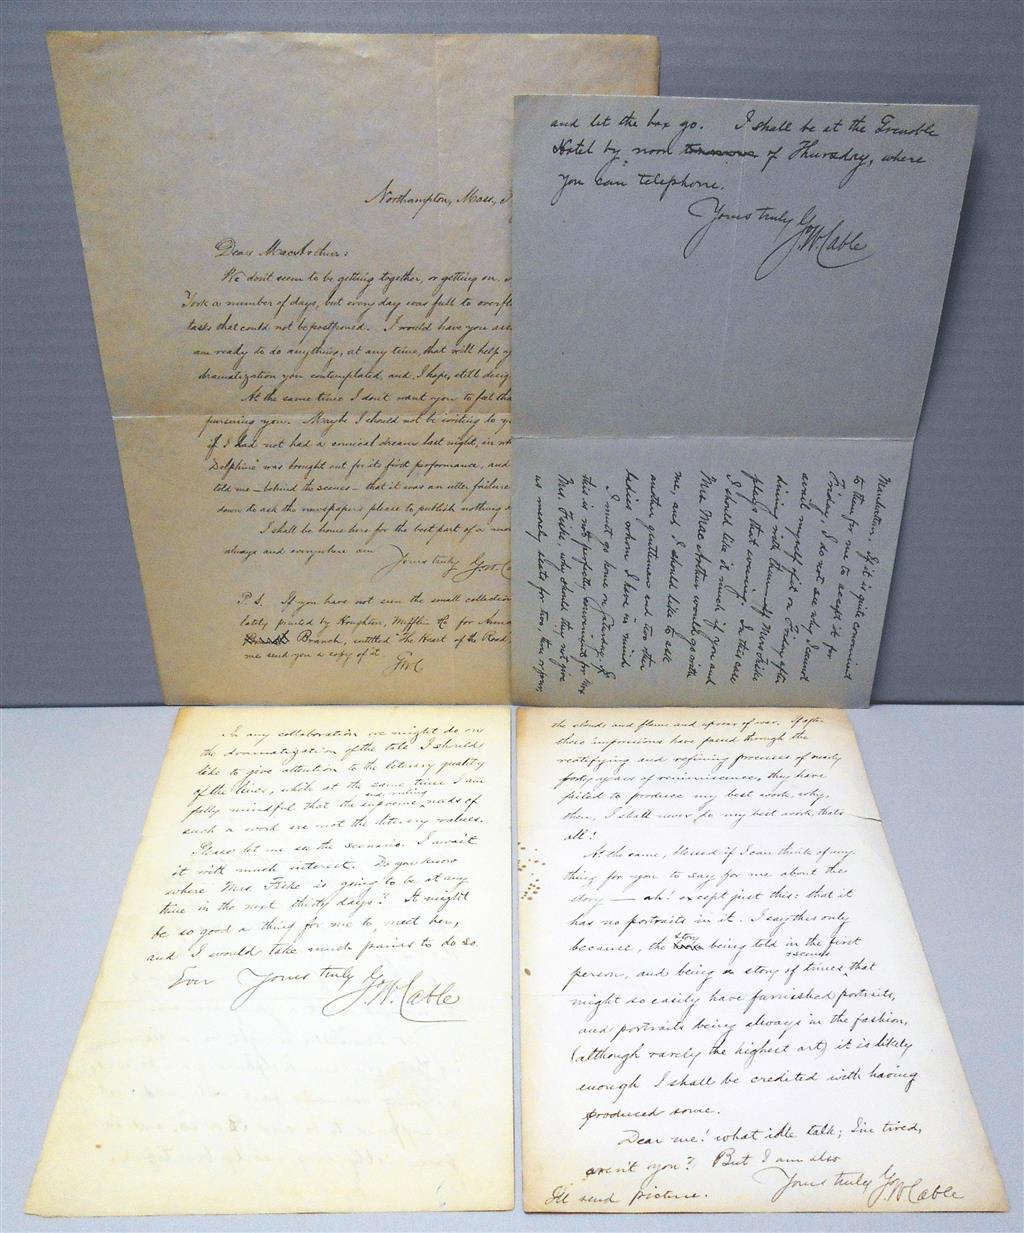 Northampton, Mass,
Dear MacArthur:
We don't seem to be getting together, or getting on.
York a number of days, but every day was full to overfl
tasks that could not be postponed. I would have you ass
am ready to do anything, at any time, that will help
dramatization you contemplated, and, I hope, still desig
At the same time I don't want you to feel tha
pursuing you. Maybe I should not be writing to y
if I had not had a comical dream last night, in wh
Delphine was brought out for its first performance, and
told me - behind the scenes - that it was an utter failure
down to ask the newspapers please to publish nothing
I shall be home here for the best part of a mon
always and everywhere am
Yours truly G.W. C
P.S. If you have not seen the small collection
lately printed by Houghton, Mifflin & Co for
Branch, entitled "The Heart of the Road,
me send you a copy of it.
GWC
and let the box go. I shall be at the Grenoble
Hotel by noon of Thursday, where
you can telephone.
Yours truly G.W. Cable
Manhattan. If it is quite convenient
to them for me to accept it for
Friday, I do not see why I cannot
avail myself of it on Friday after
dining with them if Mrs Fiske
plays that evening. In this case
I should like it much if you and
Mrs. MacArthur would go with
me, and I should like to ask
another gentleman and two other
ladies whom I have in mind.
I must go home on Saturday. If
this is not perfectly convenient for Mr
Mrs. Fiske, why should they not give
us merely seats for two, three or four,
In any collaboration we might do on
the dramatization of the tale I should
like to give attention to the literary quality
of the lines, while at the same time I am
fully mindful that the supreme and ruling needs of
such a work are not the literary values.
Please let me see the scenario. I await
it with much interest. Do you know
where Mrs. Fiske is going to be at any
time in the next thirty days? It might
be so good a thing for me to meet her,
and I would take much pains to do so.
Ever Yours truly G.W. Cable
the clouds and flame and uproar of war. If after
these impressions have passed through the
rectifying and refining processes of nearly
forty years of reminiscence, they have
failed to produce my best work, why,
then, I shall never do my best work, thats
all!
At the same, blessed if I can think of any-
thing for you to say for me about the
story — ah! except just this: that it
has no portraits in it. I say this only
because, the story being told in the first
person, and being a story of times recent that
might so easily have furnished portraits,
and portraits being always in the fashion,
(although rarely the highest art) it is likely
enough I shall be credited with having
produced some.
Dear me! what idle talk; I'm tired,
aren't you? But I am also
Yours truly G.W. Cable
I'll send picture.